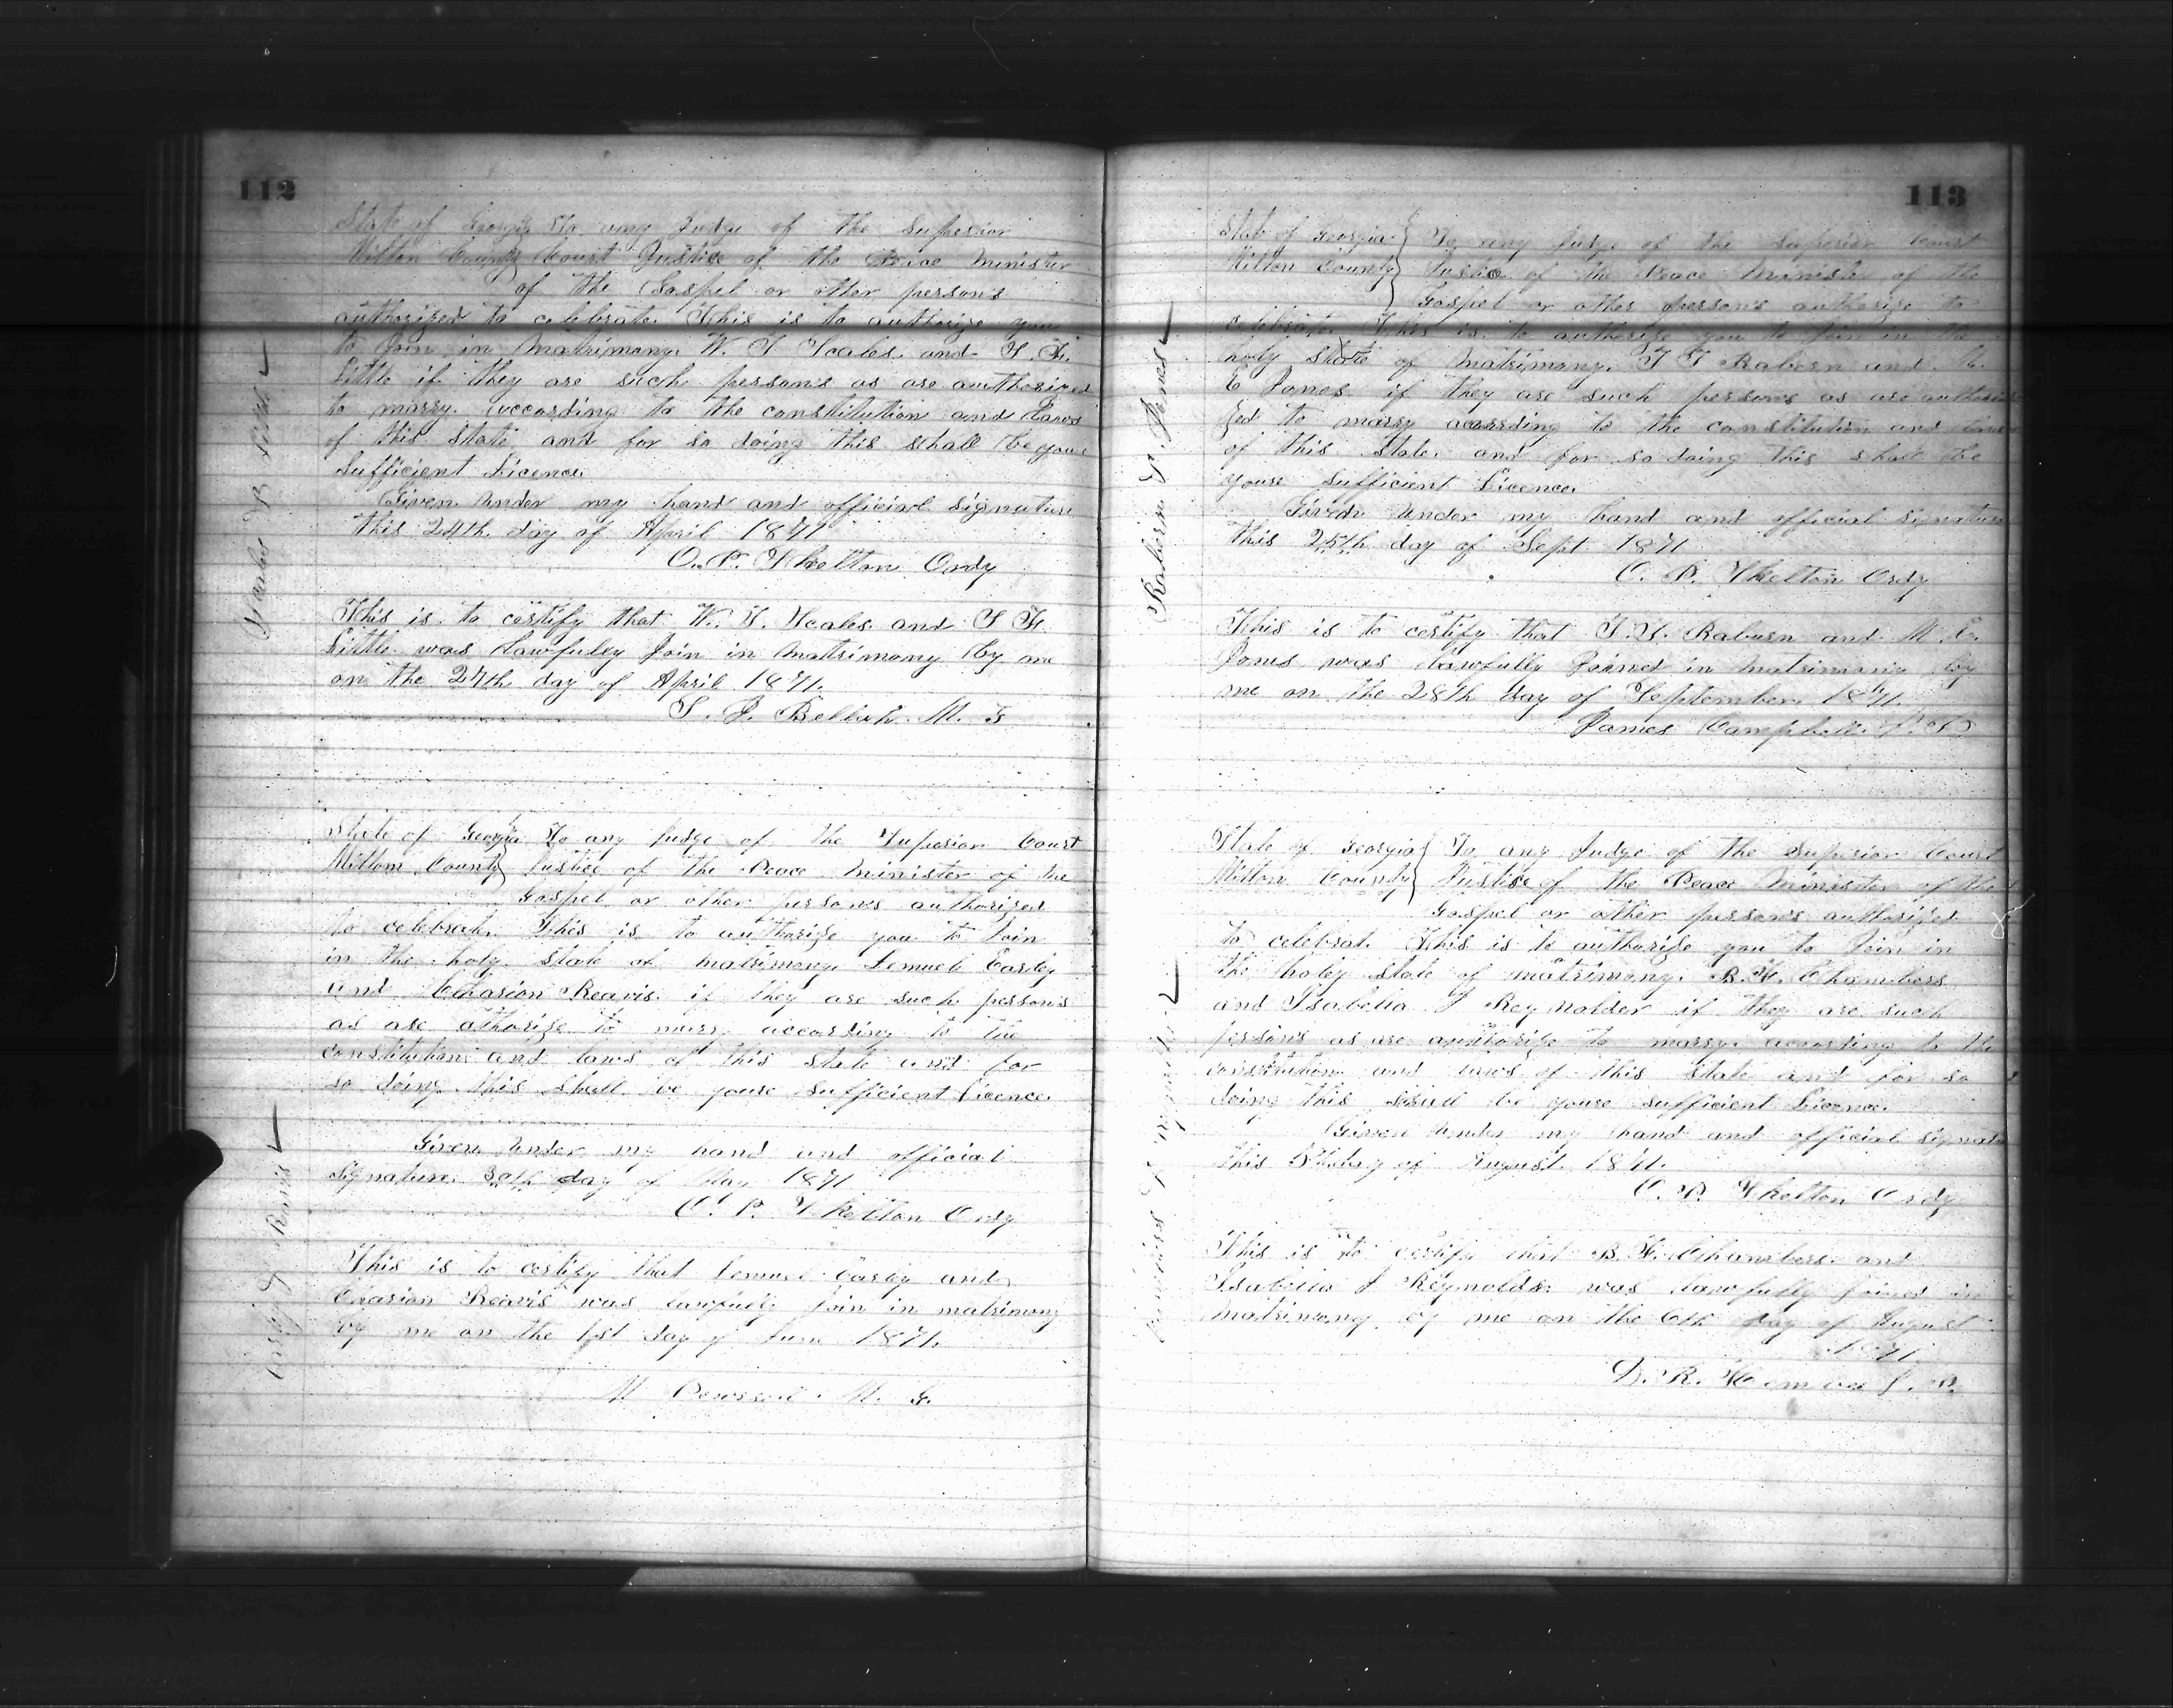 112
State of Georgia To any Judge of the Superior
Milton County Court Justice of the Peace Minister
of the Gospel or other person's
authorized to celebrate. This is to authorize you
to Join in Matrimony. W. T Scales and S. F.
Little if they are such person's as are authorized
to marry. according to the constitution and Laws
of this State and for so doing this shall be your
Sufficient Licence.
Given under my hand and official signature
this 24th day of April 1871
O. P. Skelton Ordy
This is to certify that W. T. Scales and S F.
Little was Lawfuley Join in Matrimony by me
on the 27th day of April 1871.
S. J. Bellah M. G
State of Georgia To any Judge of the Superior Court
Milton County Justice of the Peace Minister of the
Gospel or other person's authorized
to celebrate. This is to authorize you to Join
in the holy State of matrimony. Lemuel Easley
and Charion Reavis if they are such person's
as are athorize to marr according to the
constitution and laws of this State and for
so doing this shall be youre sufficient Licence.
Given under my hand and official
signature 30th day of May 1871
O. P. Skelton Ordy
This is to certify that Lemuel Easley and
Charion Reavis was lawfuely Join in matrimony
by me on the 1st day of June 1871.
M. G.
Easley & Reavis
113
State of Georgia To any Judge of the Superior Court
Milton County Justice of the Peace Minister of the
Gospel or other person's authorize to
celebrate. This is to authorize you to Join in the
holy state of Matrimony. T T Raburn and M.
E Jones if they are such person's as are authori
zed to marry according to the constitution and laws
of this State. and for so doing this shall be
youre sufficient Licence.
Given under my hand and official signature
this 25th day of Sept 1871
O. P. Skelton Ordy
This is to certify that T. T. Raburn and M. E.
Jones was lawfully Joined in matrimony by
me on the 28th day of September 1871.
James Campbell J. P.
Raburn & Jones
State of Georgia To any Judge of the Superior Court
Milton County Justice of the Peace Minister of the
Gospel or other person's authorized
to celebrat. This is to authorize you to Join in
the holey state of matrimony. B. F. Chambers
and Isabella J Reynolder if they are such
person's as are authorize to marry according to the
constitution and laws of this State and for so
doing this shall be youre sufficient Licence.
Given under my hand and official signatu
this 5th day of August 1871.
O. P. Skelton Ordy
This is to certify that B. F. Chambers and
Isabella J Reynolds was lawfully joined in
matrimony by me on the 6th day of August
1871.
D. R. Hembree J. P.